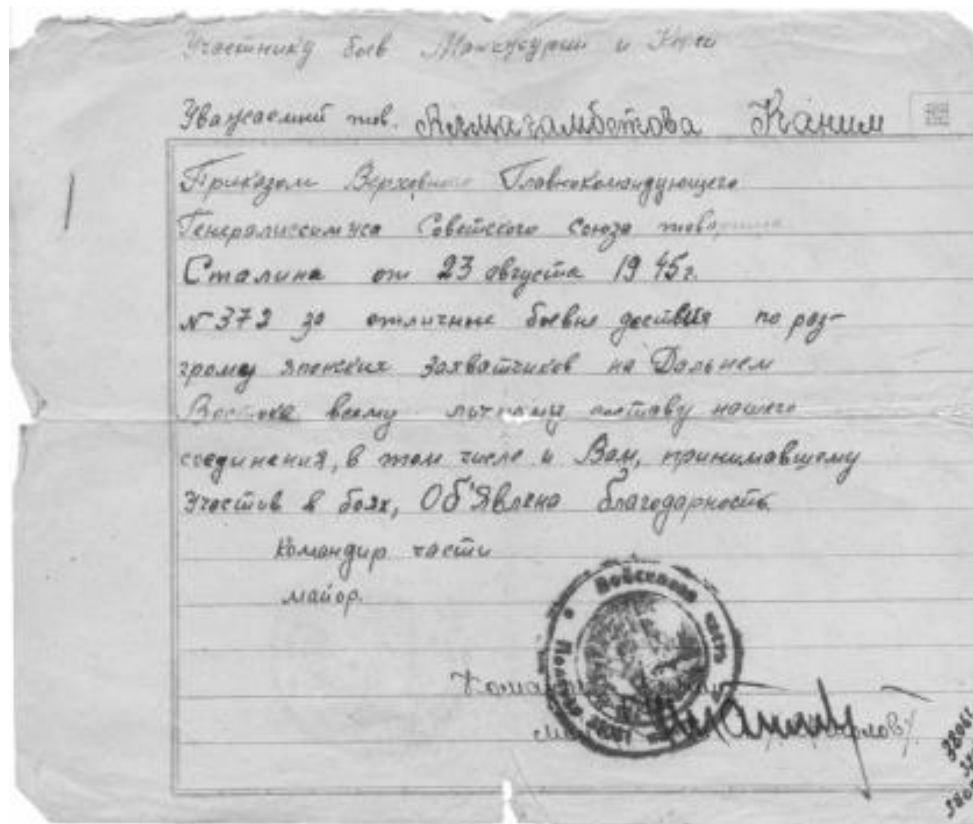 Участнику боев Манчжурии и Кореи
Уважаемый тов. Алмагамбетова Каним
Приказом Верховного Главнокомандующего
Генералиссимуса Советского Союза товарища
Сталина от 23 августа 1945г.
№372 за отличные боевые доствия по раз-
грому японских захватчиков на Дальнем
Востоке всему личному составу нашего
соединения, в том числе и Вам, принимавшему
Участив в боях, Об'явлена благодарность.
Командир части
майор.
Войсковая часть